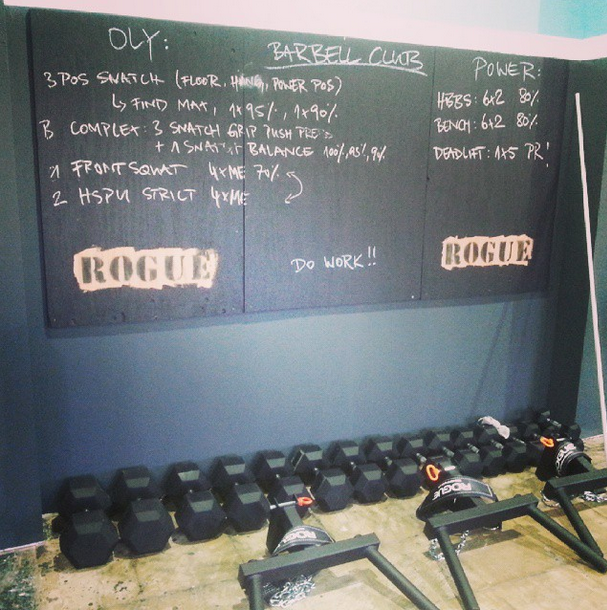 OLY:
3 POS SNATCH (FLOOR, HANG, POWER POS)
↳ FIND MAX, 1x95%, 1x90%
B COMPLEX: 3 SNATCH GRIP PUSH PRESS
+ 1 SNATCH BALANCE 100%, 95%, 90%
1 FRONT SQUAT 4xME 70%
2 HSPU STRICT 4xME
ROGUE
BARBELL CLUB
DO WORK!!
POWER:
HBBS: 6x2 80%
BENCH: 6x2 80%
DEADLIFT: 1x5 PR!
ROGUE
ROGUE
ROGUE